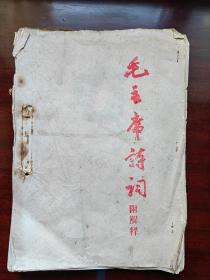 毛主席詩詞
附解释